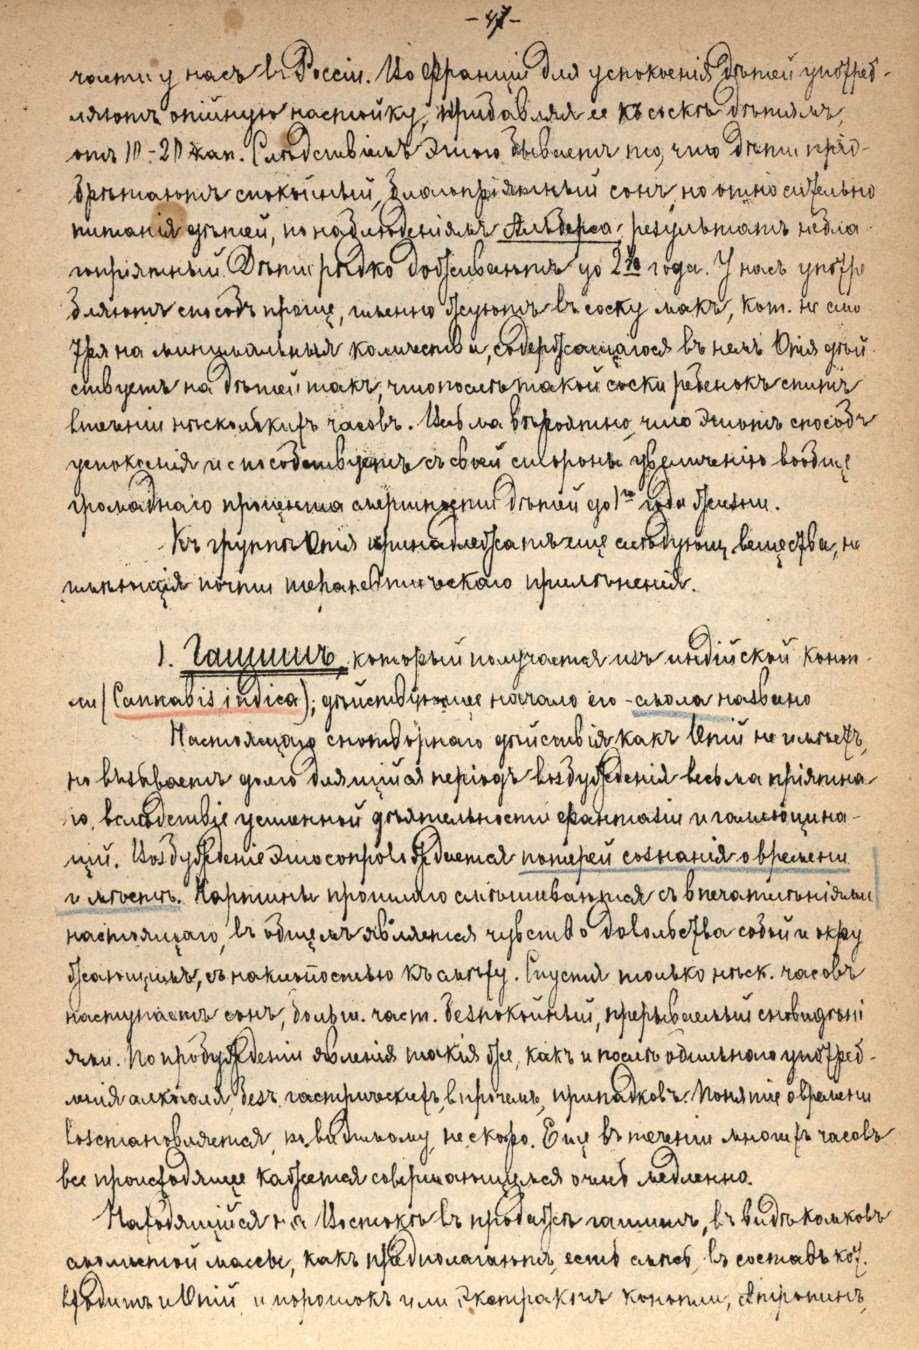 - 47 -
части у насъ въ Россіи. Во Франціи для успокоенія дѣтей употреб-
ляютъ опійную настойку, прибавляя ее къ соскѣ дѣтямъ,
отъ 10-20 кап. Слѣдствіемъ этого бываетъ то, что дѣти пріо-
брѣтаютъ спокойный, благопріятный сонъ, но относительно
питанія дѣтей, по наблюденіямъ Альберса, результатъ небла-
гопріятный. Дѣти рѣдко доживаютъ до 2го года. У насъ употре
бляютъ способъ проще, именно жуютъ въ соску макъ, кот. не смо
тря на минимальныя количества, содержащагося въ немъ Опія дѣй
ствуетъ на дѣтей такъ, что послѣ такой соски ребенокъ спитъ
втеченіи нѣсколькихъ часовъ. Весьма вѣроятно, что этотъ способъ
успокоенія и способствуетъ съ своей стороны увеличенію вообще
громаднаго процента смертности дѣтей до 1го года жизни.
Къ группѣ Опія принадлежатъ еще слѣдующ. вещества, не
имѣющія почти терапевтическаго примѣненія.
1. Гашишъ, который получается изъ индійской коноп-
ли (Cannabis indica); дѣйствующее начало его - смола названо
Настоящаго снотворнаго дѣйствія какъ Опій не имѣетъ,
но вызываетъ долго длящійся періодъ возбужденія весьма пріятна-
го, вслѣдствіе усиленной дѣятельности фантазіи и галлюцина-
цій. Возбужденіе это сопровождается потерей сознанія о времени
и мѣстѣ. Картины прошлаго смѣшиваются съ впечатлѣніями
настоящаго, въ общемъ является чувство довольства собой и окру
жающимъ, съ наклонностью къ смѣху. Спустя только нѣск. часовъ
наступаетъ сонъ, больш. част. безпокойный, прерываемый сновидѣні
ями. По пробужденіи явленія такія же, какъ и послѣ обильнаго употреб-
ленія алкоголя, безъ гастрическихъ, впрочемъ, припадковъ. Понятіе о времени
возстановляется, повидимому, не скоро. Еще въ теченіи многихъ часовъ
все происходящее кажется совершающимся очень медленно.
Находящійся на Востокѣ въ продажѣ гашишъ, въ видѣ комковъ
смолистой массы, какъ предполагаютъ, есть смѣсь, въ составъ кот.
входитъ и Опій, и порошокъ или экстрактъ конопли, Атропинъ,